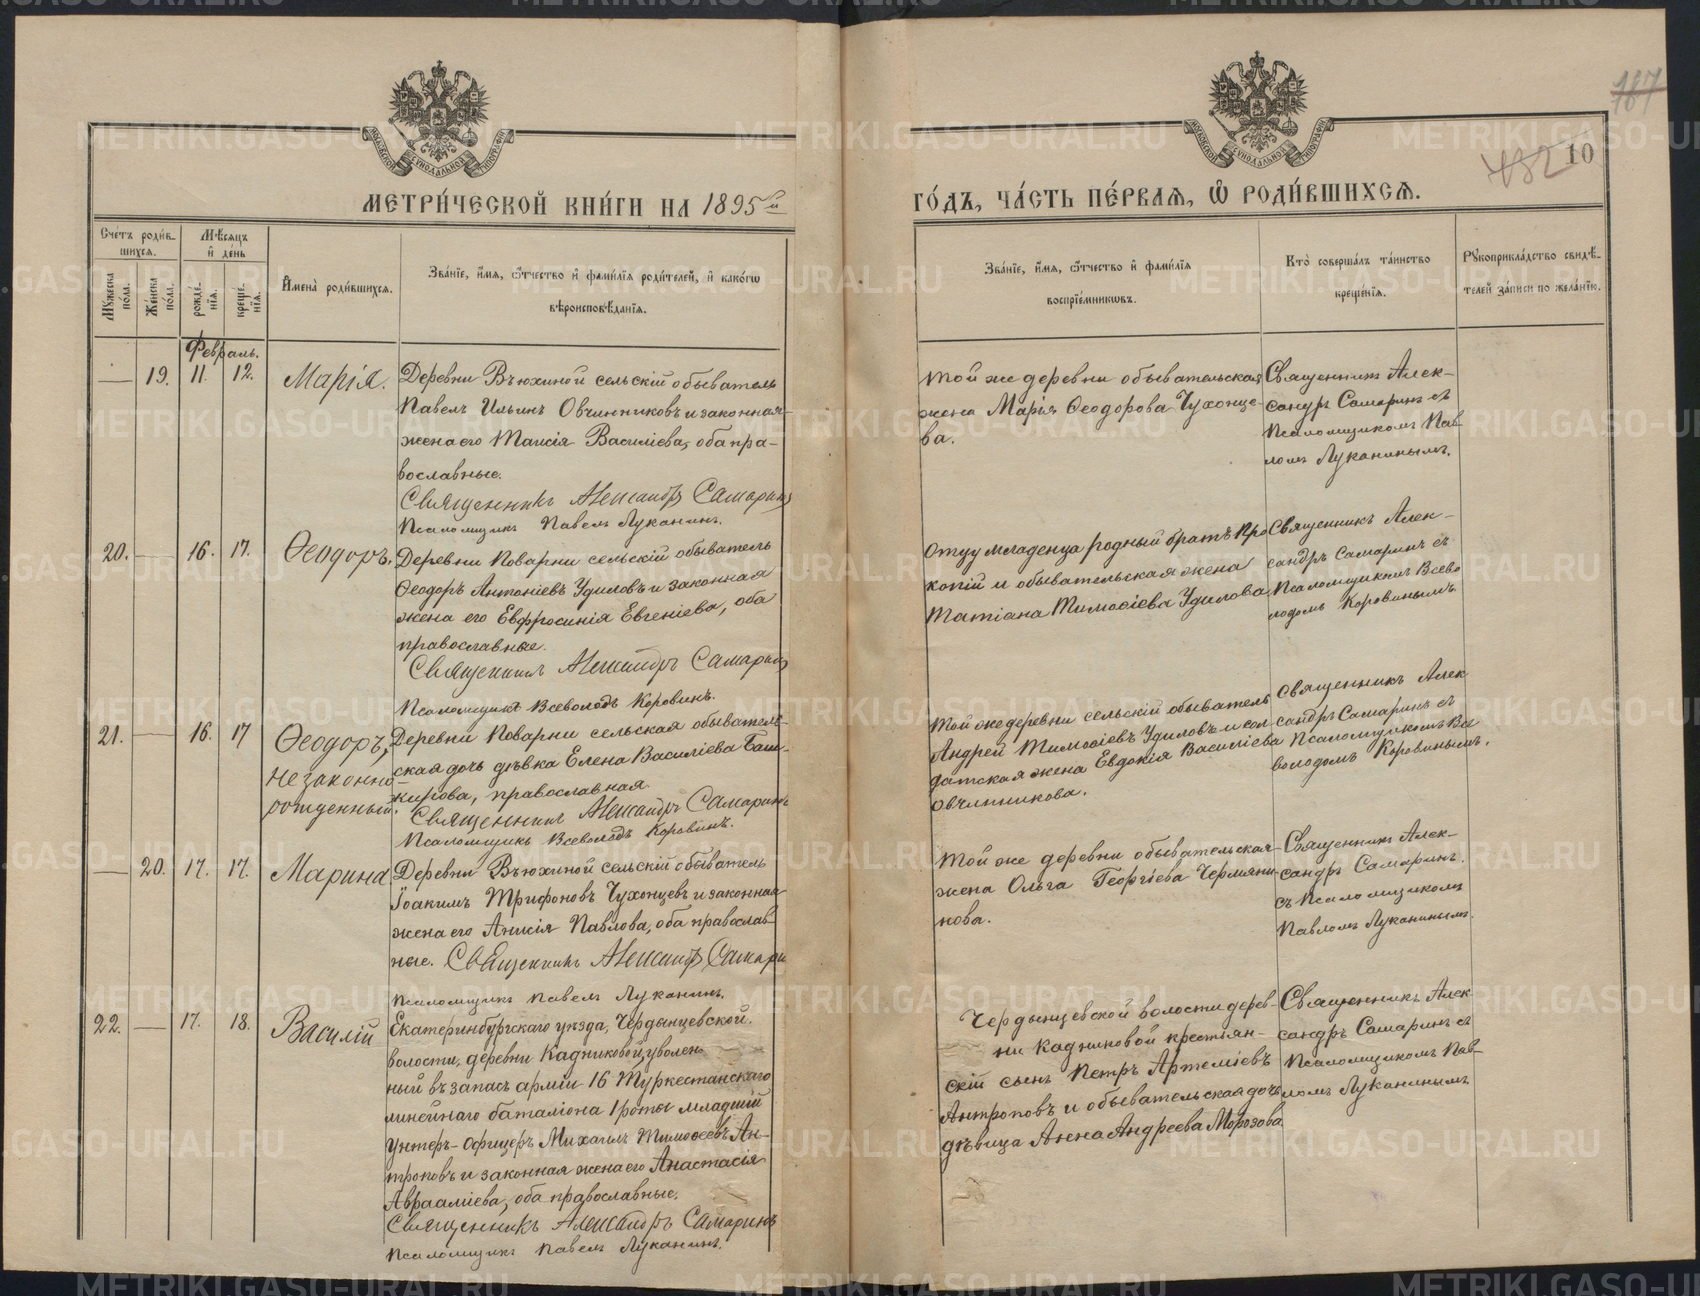 187
432
10
МОСКОВСКОЙ СУНОДАЛЬНОЙ ТИПОГРАФІИ
МОСКОВСКОЙ СУНОДАЛЬНОЙ ТИПОГРАФІИ
МЕТРИ́ЧЕСКОЙ КНИ́ГИ НА 1895й
ГО́ДЪ, ЧА́СТЬ ПЕ́РВАЯ, Ѡ РОДИ́ВШИХСЯ.
Сче́тъ роди́в-
шихся.
Мѣ́сяцъ
и҆ де́нь
Мꙋ́жеска по́ла.
Же́нска по́ла.
рожде́-
нїя.
креще́-
нїя.
И҆мена̀ роди́вшихся.
Зва́нїе, и҆́мя, ѻ҆́тчество и҆ фами́лїя роди́телей, и҆ како́гѡ
вѣроисповѣ́данїя.
Зва́нїе, и҆́мя, ѻ҆́тчество и҆ фами́лїя
воспрїе́мниковъ.
Кто̀ соверша́лъ та́инство
креще́нїя.
Рꙋкоприкла́дство свидѣ́-
телей за́писи по жела́нїю.
Февраль.
— 19. 11. 12. Марія.
Деревни Вьюхиной сельскій обыватель
Павелъ Ильинъ Овчинниковъ и законная
жена его Таисія Василіева, оба пра-
вославные.
Священникъ Александръ Самаринъ
Псаломщикъ Павелъ Луканинъ.
Той же деревни обывательская
жена Марія Ѳеодорова Чухонце-
ва.
Священникъ Алек-
сандръ Самаринъ съ
Псаломщикомъ Пав
ломъ Луканинымъ.
20. — 16. 17. Ѳеодоръ.
Деревни Поварни сельскій обыватель
Ѳеодоръ Антоніевъ Удиловъ и законная
жена его Евфросинія Евгеніева, оба
православные.
Священникъ Александръ Самаринъ
Псаломщикъ Всеволодъ Коровинъ.
Отцу младенца родный братъ Про
копій и обывательская жена
Татіана Тимоѳіева Удилова
Священникъ Алек-
сандръ Самаринъ съ
Псаломщикомъ Всево
лодомъ Коровинымъ
21. — 16. 17 Ѳеодоръ,
незаконно-
рожденный.
Деревни Поварни сельская обыватель-
ская дочь дѣвка Елена Василіева Баш-
кирова, православная.
Священникъ Александръ Самаринъ
Псаломщикъ Всеволодъ Коровинъ.
Той же деревни сельскій обыватель
Андрей Тимоѳіевъ Удиловъ и сол
датская жена Евдокія Василіева
Овчинникова.
Священникъ Алек
сандръ Самаринъ съ
Псаломщикомъ Все
володомъ Коровинымъ.
— 20. 17. 17. Марина
Деревни Вьюхиной сельскій обыватель
Іоакимъ Трифоновъ Чухонцевъ и законная
жена его Анисія Павлова, оба православ
ные. Священникъ Александръ Самари
Псаломщикъ Павелъ Луканинъ.
Той же деревни обывательская
жена Ольга Георгіева Чермяни-
нова.
Священникъ Алек-
сандръ Самаринъ.
съ Псаломщикомъ
Павломъ Луканинымъ.
22. — 17. 18. Василій
Екатеринбургскаго уѣзда, Чердынцевской.
волости, деревни Кадниковой, уволен
ный въ запасъ арміи 16 Туркестанскаго
линейнаго баталіона 1 роты младшій
унтеръ-офицеръ Михаилъ Тимоѳеевъ Ан-
троповъ и законная жена его Анастасія
Авраамiева, оба православные.
Священникъ Александръ Самаринъ
Псаломщикъ Павелъ Луканинъ.
Чердынцевской волости дерев-
ни Кадниковой крестьян-
скій сынъ Петръ Артеміевъ
Антроповъ и обывательская дочь
дѣвица Анна Андреева Морозова
Священникъ Алек
сандръ Самаринъ съ
Псаломщикомъ Пав-
ломъ Луканинымъ